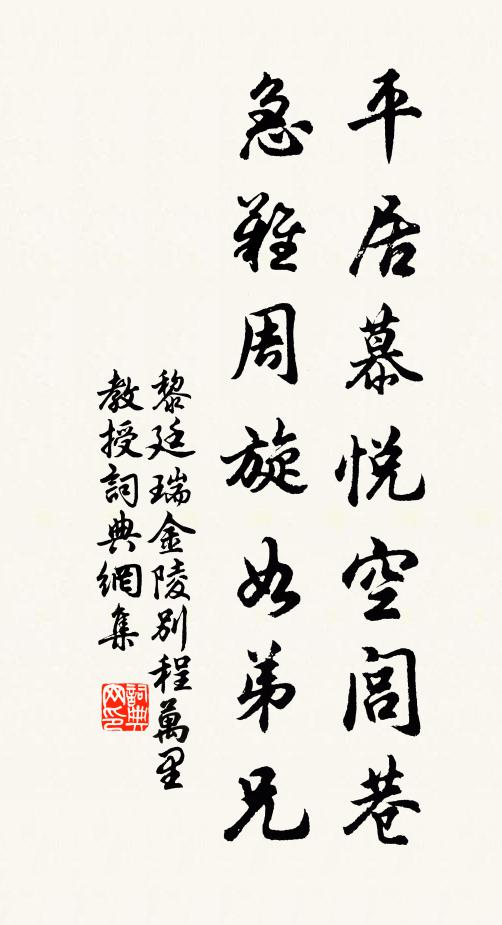 平居慕悦空閭巷
急難周旋如弟兄
黎廷瑞金陵別程萬里
教授詞典網集
詞典網印